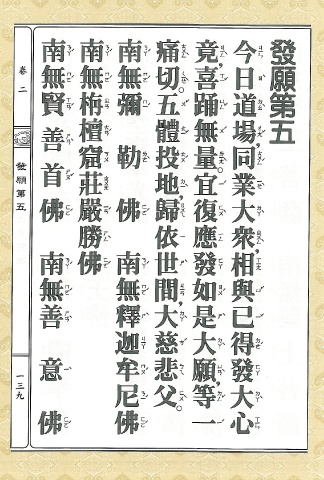 發願第五
今日道場，同業大眾，相與已得發大心
竟，喜踊無量。宜復應發如是大願，等一
痛切。五體投地，歸依世間，大慈悲父。
南無彌勒佛　南無釋迦牟尼佛
南無栴檀窟莊嚴勝佛
南無賢善首佛　南無善意佛
卷二
發願第五
一三九